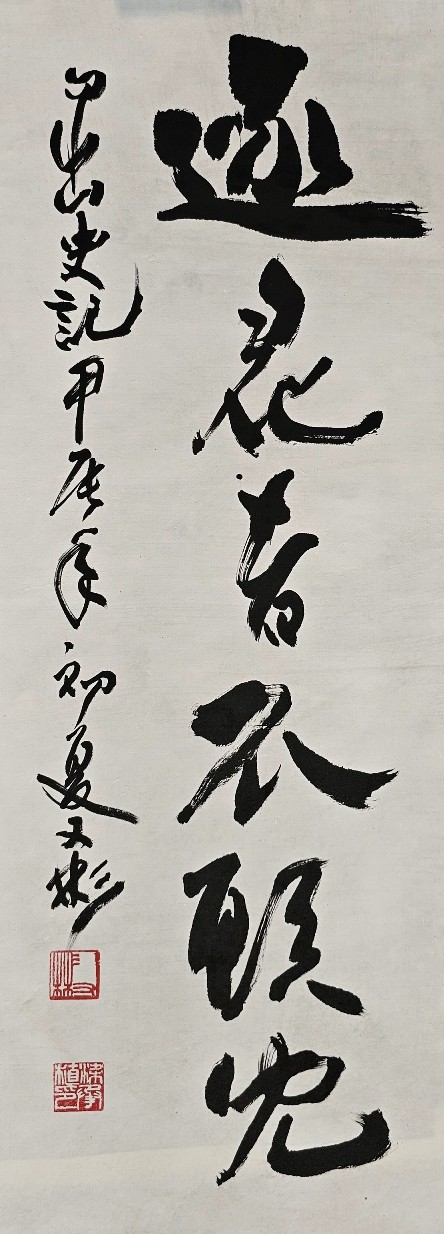 逐鹿者不顧兔
史記甲辰年初夏又彬